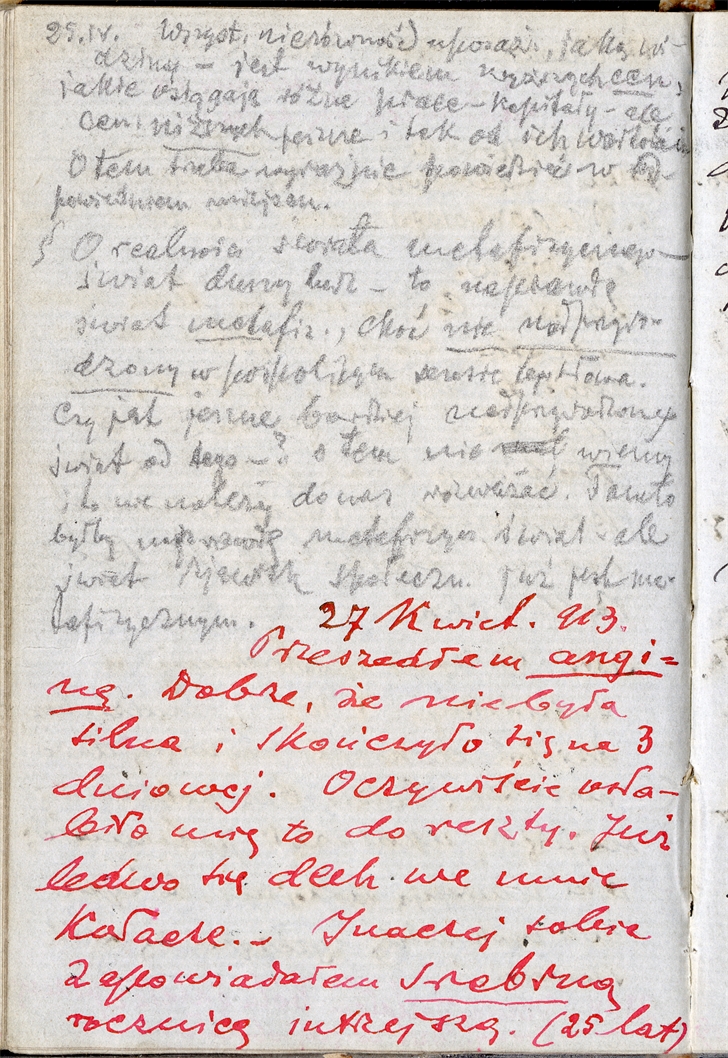 25.IV. Wszyst. nierówność uposaż., jaką wi-
dzimy – jest wynikiem wyższych cen,
jakie osiągają różne prace – kapitały – ale
ceni niższych jeszcze i tak od ich wartości
O tem trzeba wyraźnie powiedzieć w od-
powiedniem miejscu.
§ O realności świata metafizycznego –
świat duszy ludz – to naprawdę
świat metafiz., choć nie nadprzyro-
dzony w pospolitym sensie tego słowa.
Czy jest jeszcze bardziej nadprzyrodzony
świat od tego – ? o tem nie wiemy
i to nie należy do nas rozważać. Tamto
byłby naprawdę metafizyczn świat – ale
świat zjawisk społeczn. już jest me-
tafizycznym.
27 Kwiet. 913.
Przeszedłem angi=
nę. Dobrze, że nie była
silna i skończyło się na 3
dniowej. Oczywiście osła-
biło mię to do reszty. Już
ledwo się dech we mnie
kołacze. – Inaczej sobie
zapowiadałem srebrną
rocznicę jutrzejszą. (25 lat)